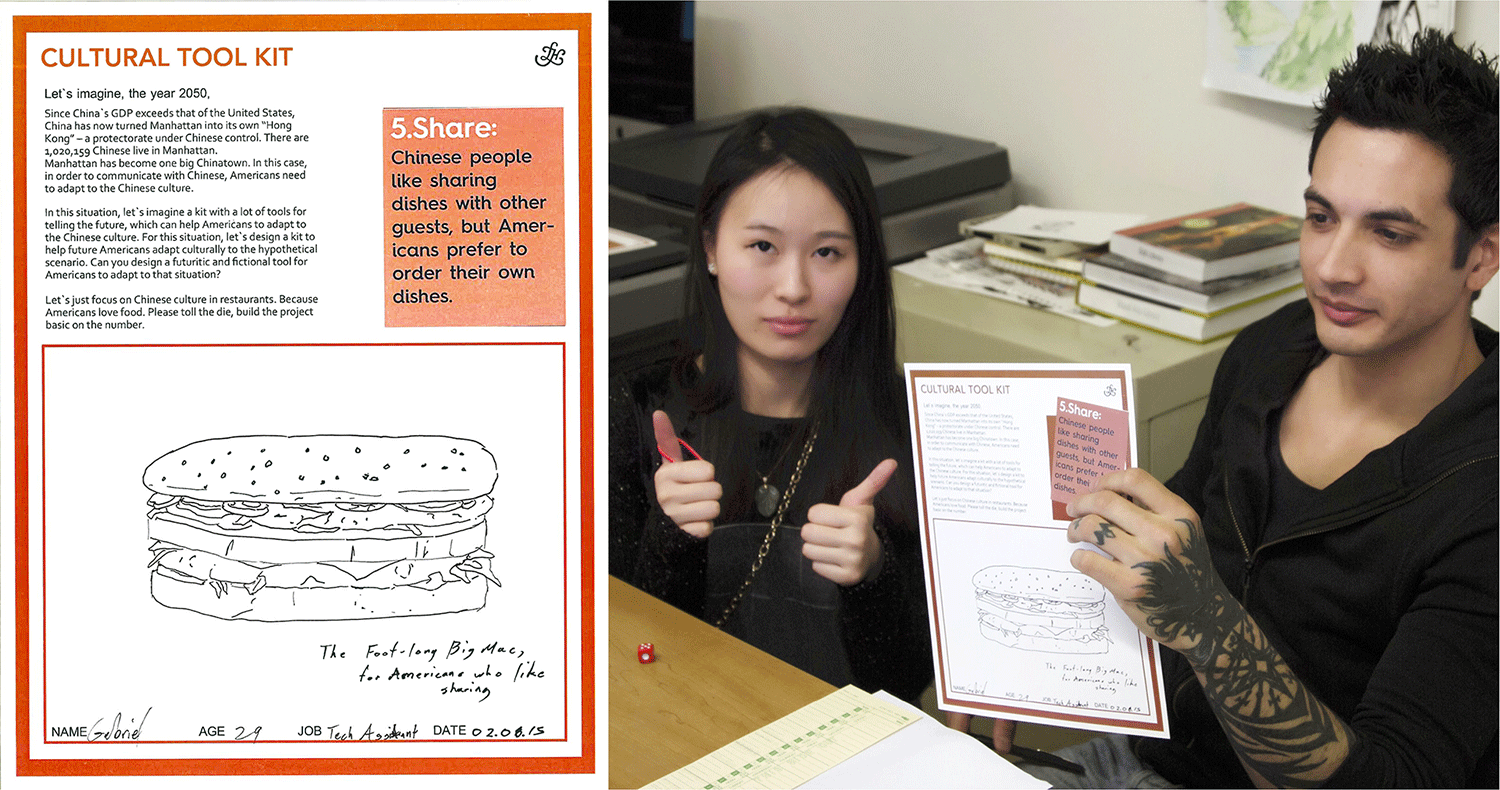 CULTURAL TOOL KIT
Let`s imagine, the year 2050,
Since China`s GDP exceeds that of the United States,
China has now turned Manhattan into its own “Hong
Kong” – a protectorate under Chinese control. There are
1,020,159 Chinese live in Manhattan.
Manhattan has become one big Chinatown. In this case,
in order to communicate with Chinese, Americans need
to adapt to the Chinese culture.
In this situation, let`s imagine a kit with a lot of tools for
telling the future, which can help Americans to adapt to
the Chinese culture. For this situation, let`s design a kit to
help future Americans adapt culturally to the hypothetical
scenario. Can you design a futuritic and fictional tool for
Americans to adapt to that situation?
Let`s just focus on Chinese culture in restaurants. Because
Americans love food. Please toll the die, build the project
basic on the number.
5.Share:
Chinese people
like sharing
dishes with other
guests, but Amer-
icans prefer to
order their own
dishes.
The Foot-long Big Mac,
for Americans who like
sharing
NAME Gabriel AGE 29 JOB Tech Assistant DATE
CULTURAL TOOL KIT
Let`s imagine, the year 2050
5.Share:
Chinese people
like sharing
dishes with other
guests, but Amer-
icans prefer
order thei
dishes.
The Foot-long Big Mac,
for Americans who like
sharing
NAME AGE 29 JOB Tech Assistant DATE